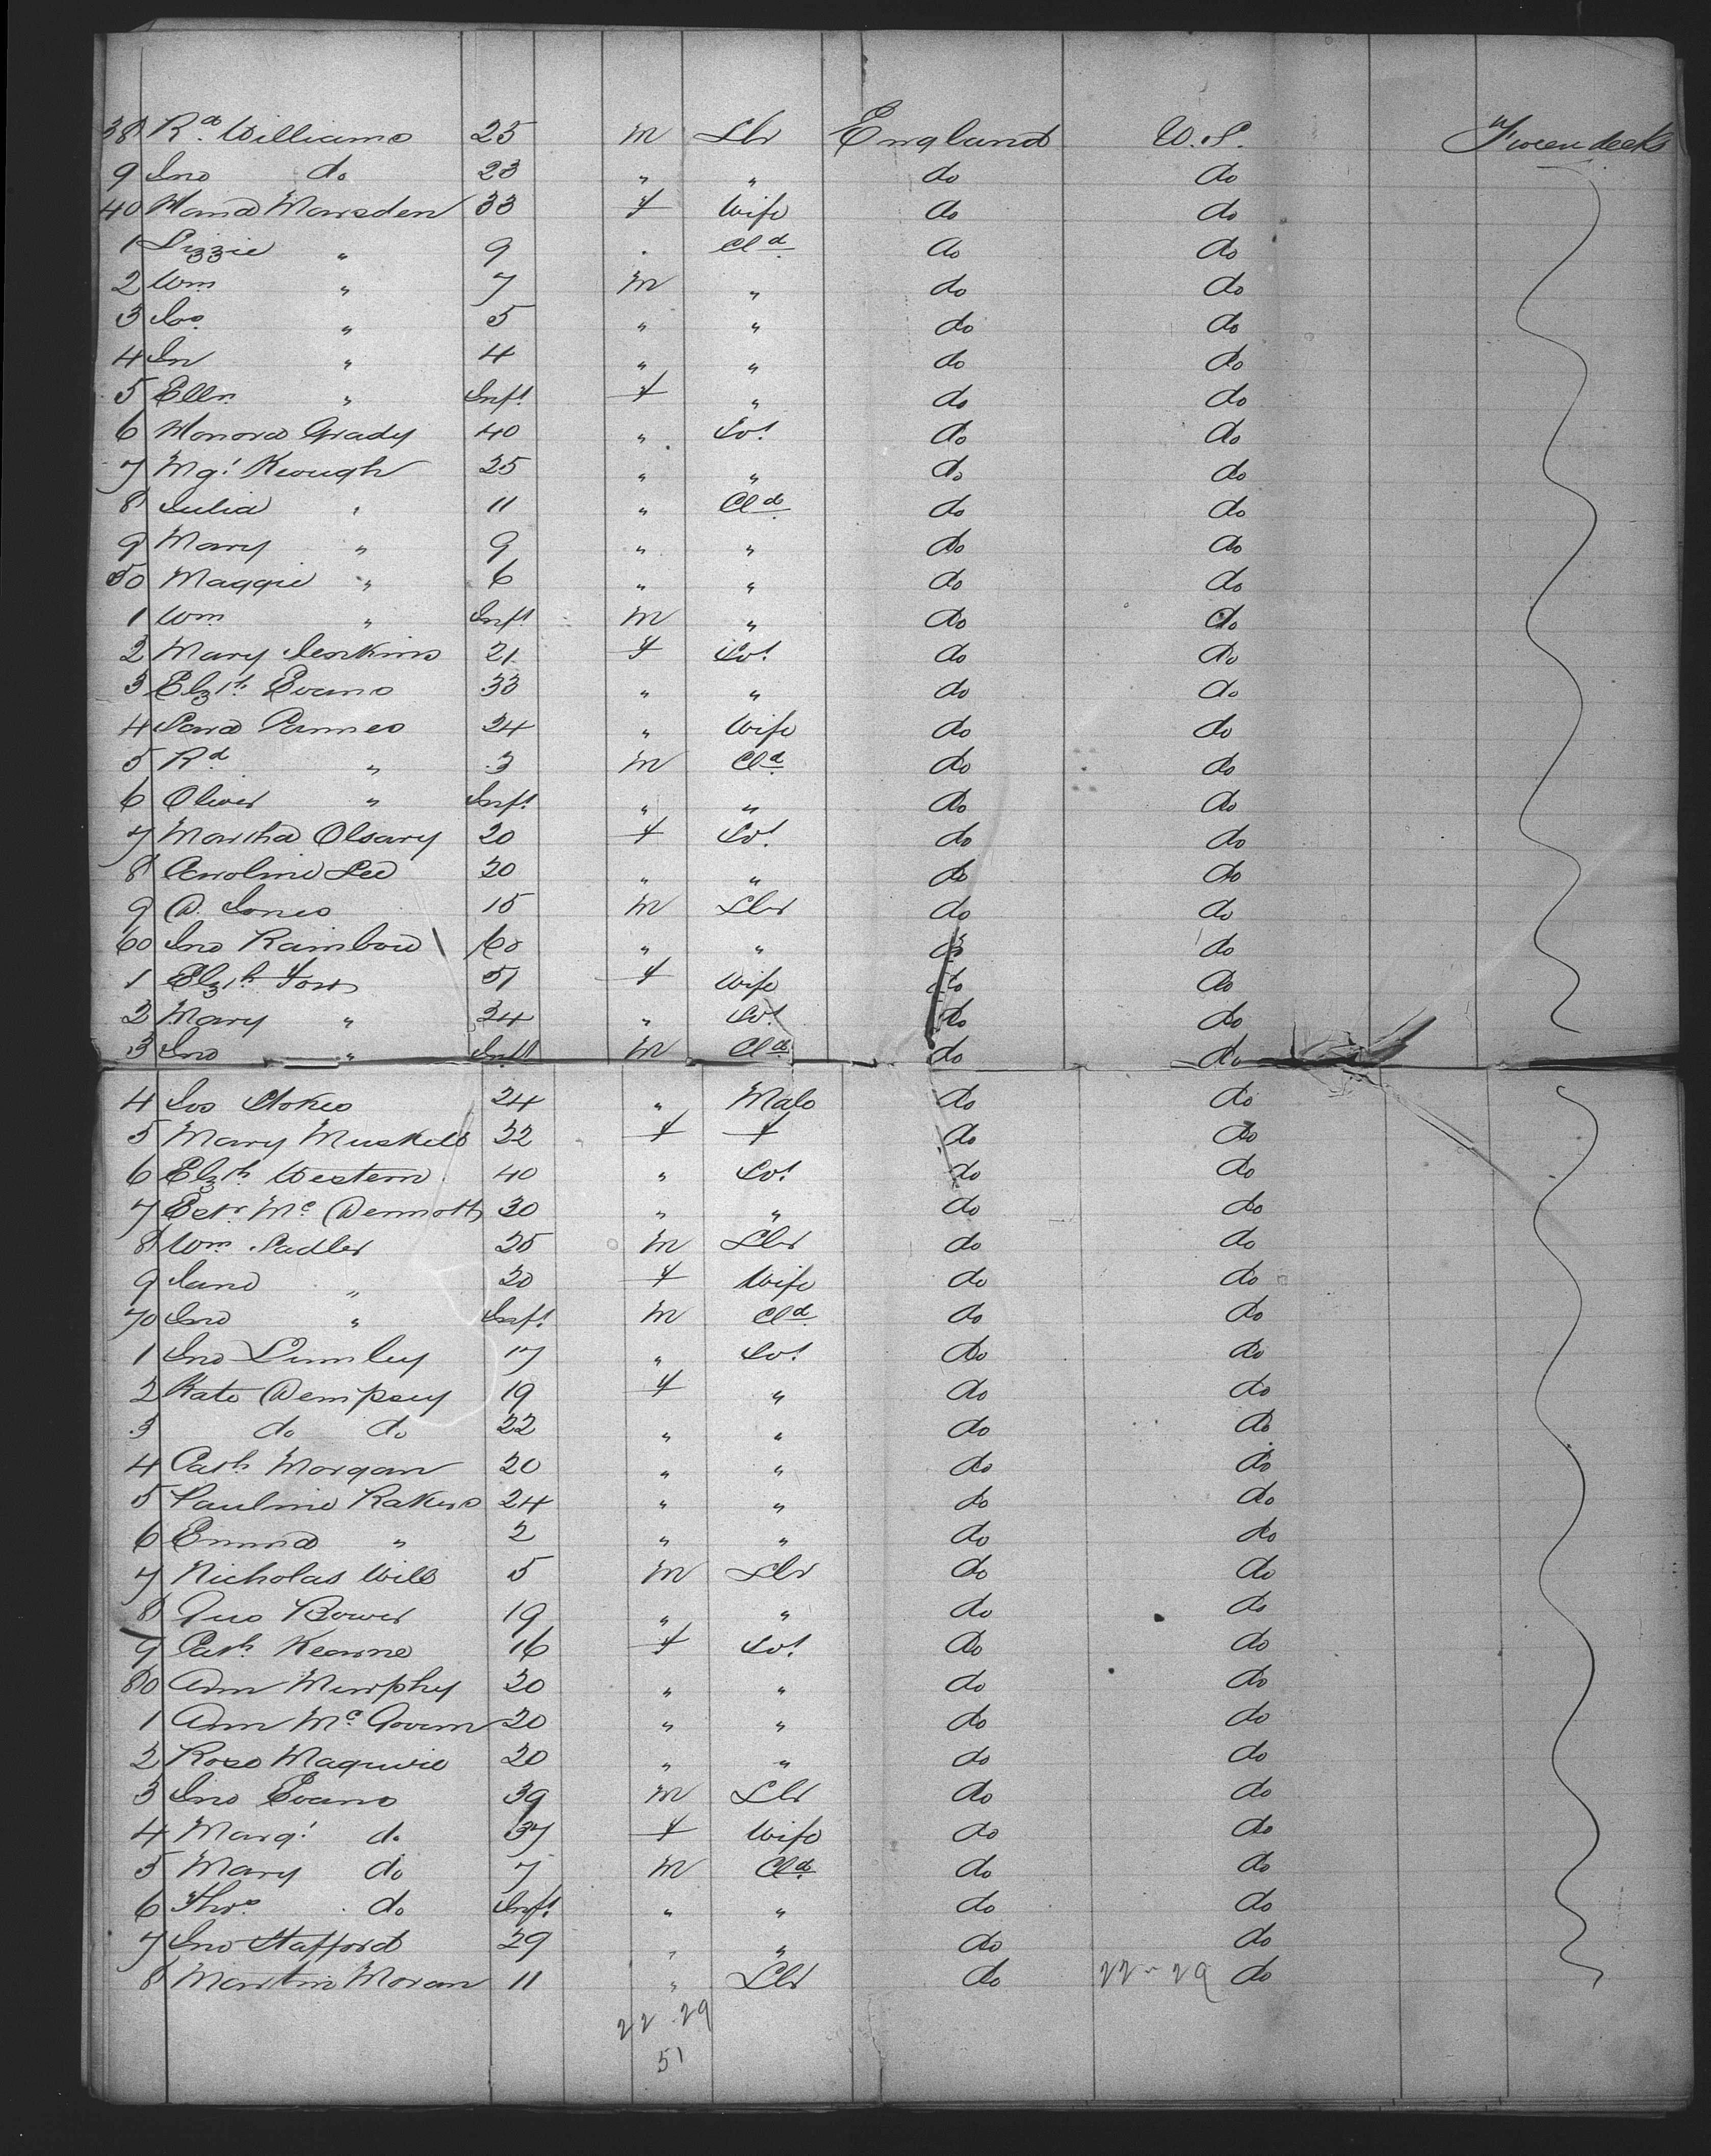 38 Rd Williams 25 M Lbr England U.S. 'Tween decks
9 Jno do 23 " " do do
40 Hana Marsden 33 f Wife do do
1 Lizzie " 9 . Cld do do
2 Wm " 7 M " do do
3 Jos " 5 " " do do
4 Jn " 4 " " do do
5 Elln " Inft f " do do
6 Honora Grady 40 " Svt do do
7 Mgt Keough 25 " " do do
8 Julia " 11 " Cld do do
9 Mary " 9 " " do do
50 Maggie " 6 " " do do
1 Wm " Inft M " do do
2 Mary Jenkins 21 f Svt do do
3 Elzth Evans 33 " " do do
4 Sara 24 " Wife do do
5 Rd " 3 M Cld do do
6 Oliver " Inft " " do do
7 Martha 20 f Svt do do
8 Caroline Lee 20 " " do do
9 D. Jones 15 M Lbr do do
60 Jno Rainbow 60 " " do do
1 Elzth Fox 51 f Wife do do
2 Mary " 24 " Svt do do
3 Jno " Inft M Cld do do
4 Jos Stokes 24 " Male do do
5 Mary Muskell 22 f f do do
6 Elzth Western 40 " Svt do do
7 McDermott 30 " " do do
8 Wm Sadler 25 M Lbr do do
9 Jane " 20 f Wife do do
70 Jno " Inft M Cld do do
1 Jno Lumley 17 " Svt do do
2 Kate Dempsey 19 f " do do
3 do do 22 " " do do
4 Cath Morgan 20 " " do do
5 Pauline Rakers 24 " " do do
6 Emma " 2 " " do do
7 Nicholas Will 5 M Lbr do do
8 Geo Bower 19 " " do do
9 Cath Kearne 16 f Svt do do
80 Ann Murphy 20 " " do do
1 Ann McGovern 20 " " do do
2 Rose Maguire 20 " " do do
3 Jno Evans 39 M Lbr do do
4 Margt do 37 f Wife do do
5 Mary do 7 M Cld do do
6 Thos do Inft " " do do
7 Jno Stafford 29 " " do do
8 Martin Moran 11 " Lbr do 22-29 do
22.29
51